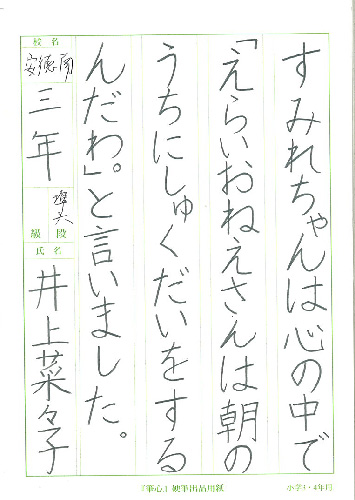 すみれちゃんは心の中で
「えらいおねえさんは朝の
うちにしゅくだいをする
んだわ。」と言いました。
校名
安徳南
三年
段級
準六
氏名
井上菜々子
『筆心』硬筆出品用紙
小学3・4年用